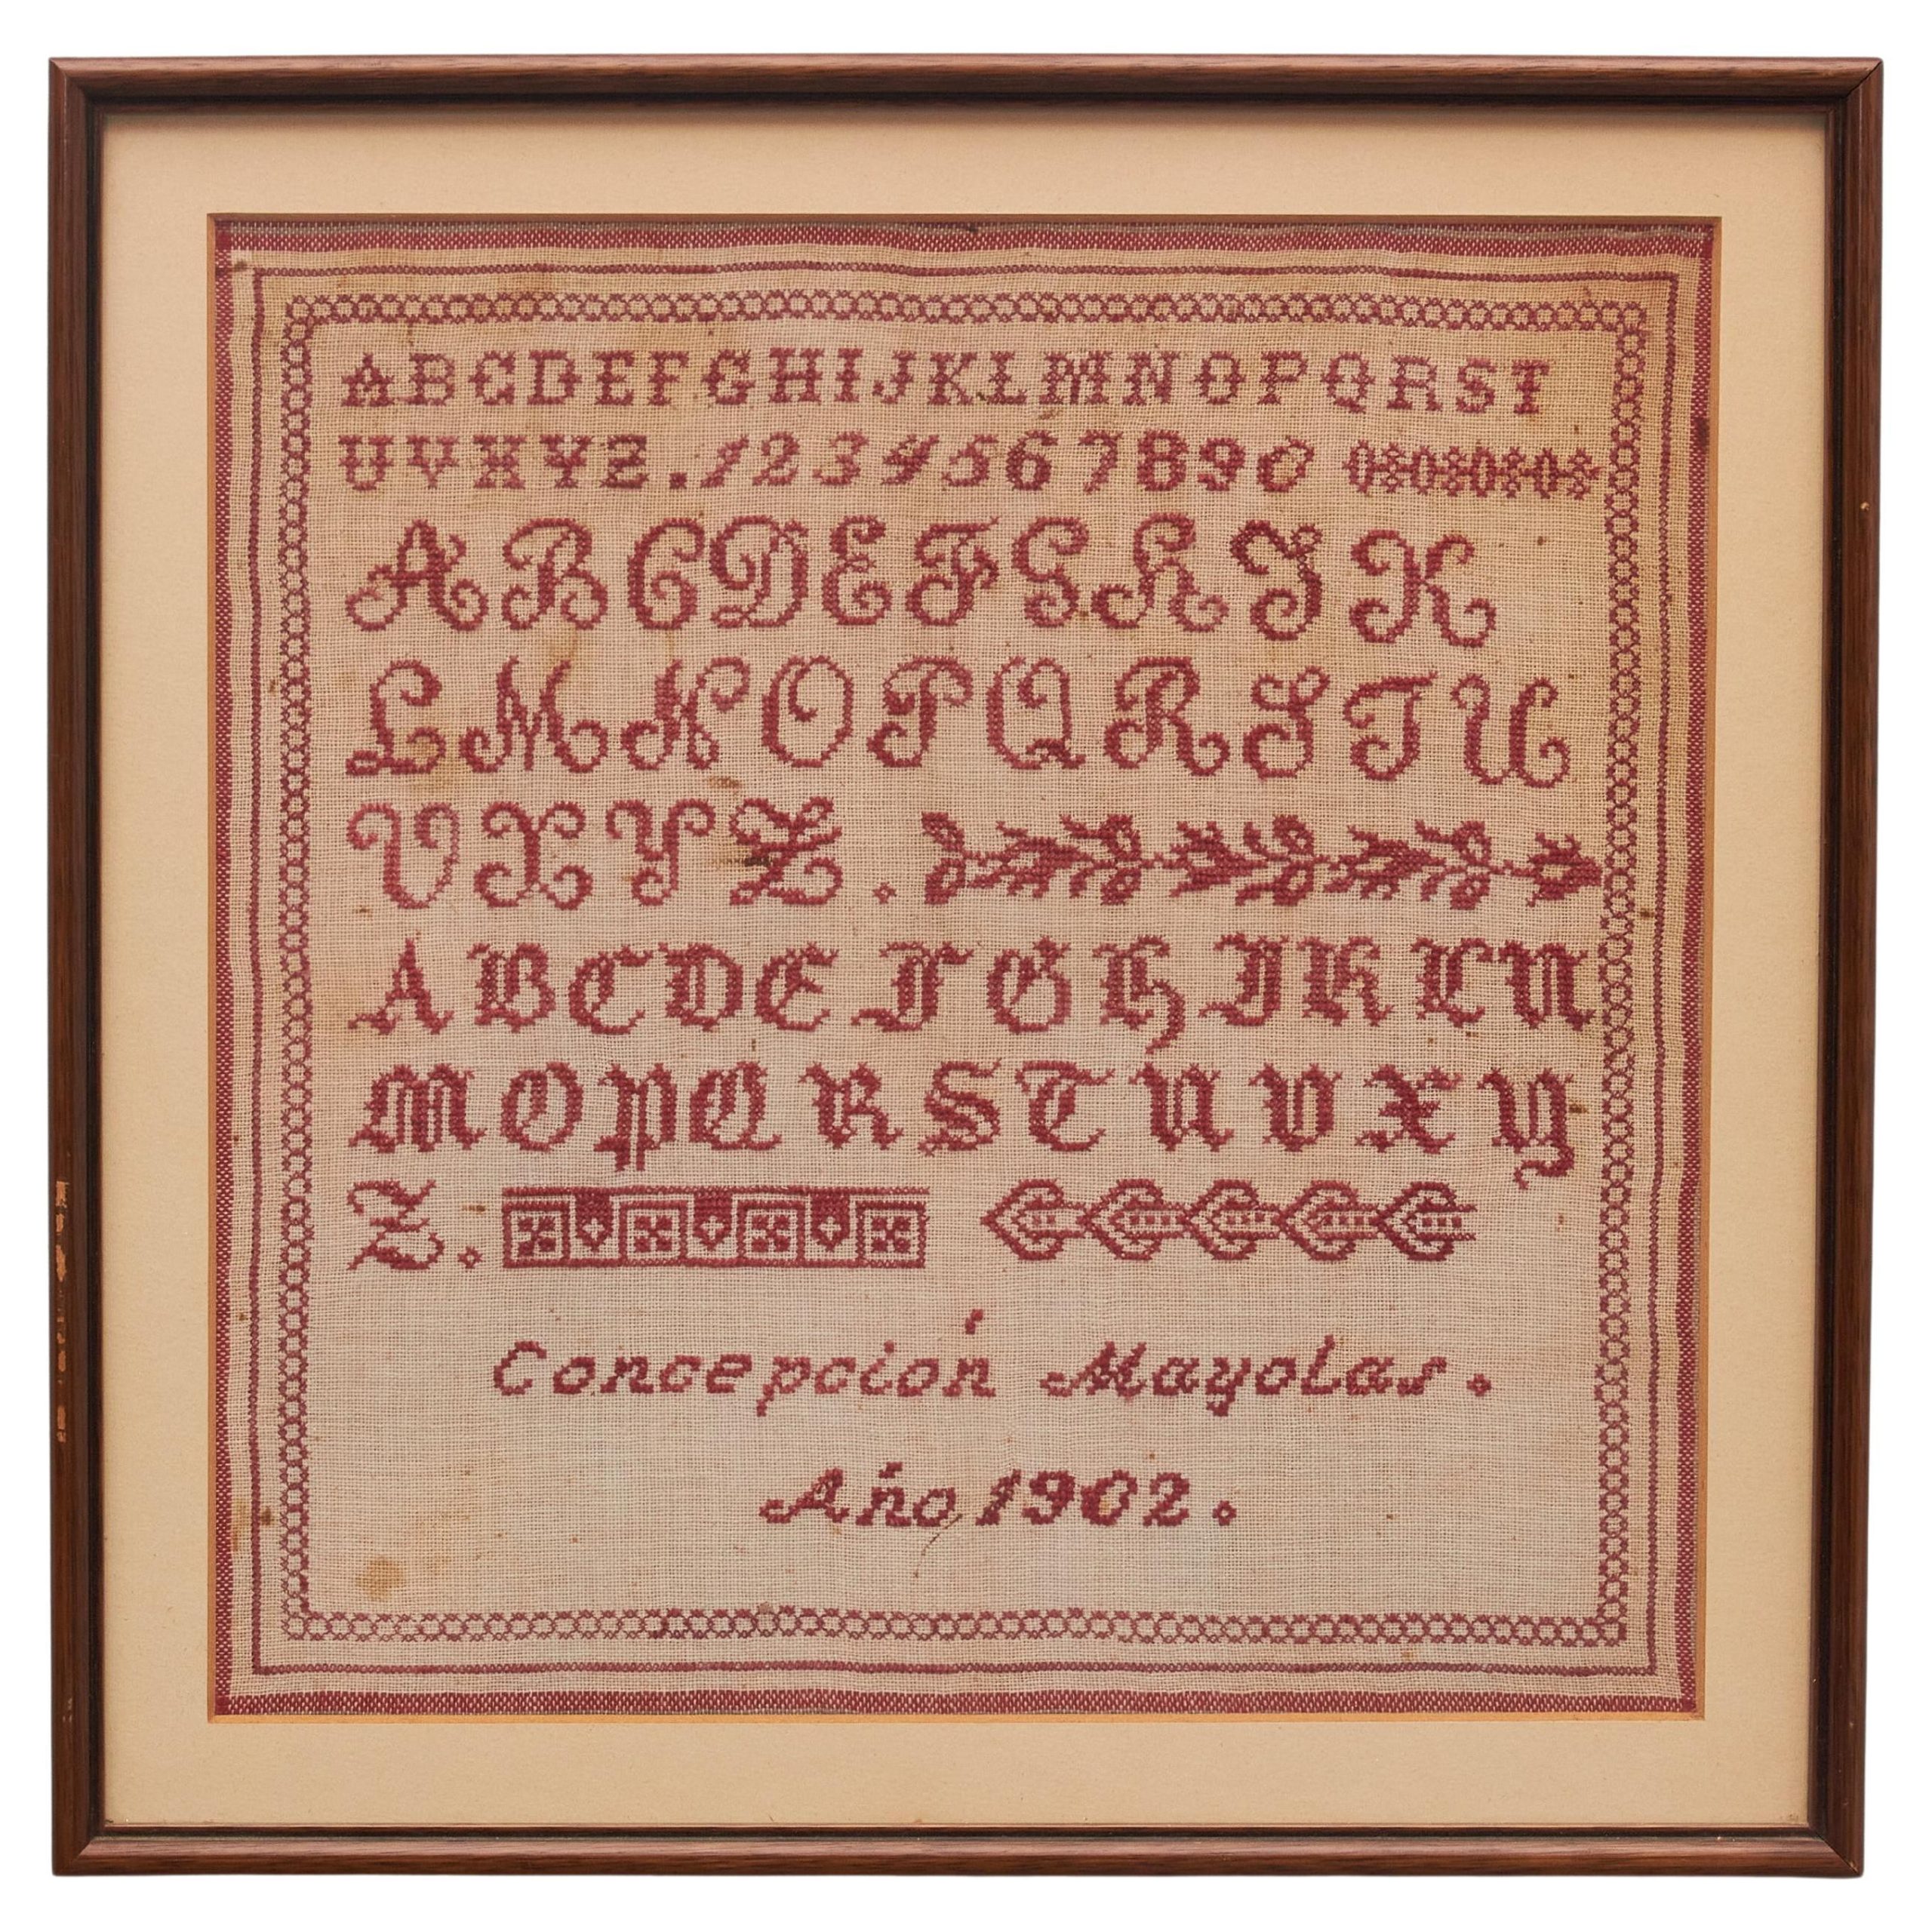 ABCDEFGHIJKLMNOPQRST
UVXYZ.1234567890
ABCDEFGHIK
LMNOPQRSTU
VXYZ.
ABCDEFGHIKLN
MOPQRSTUVXY
Z.
Concepción Mayolas.
Año 1902.